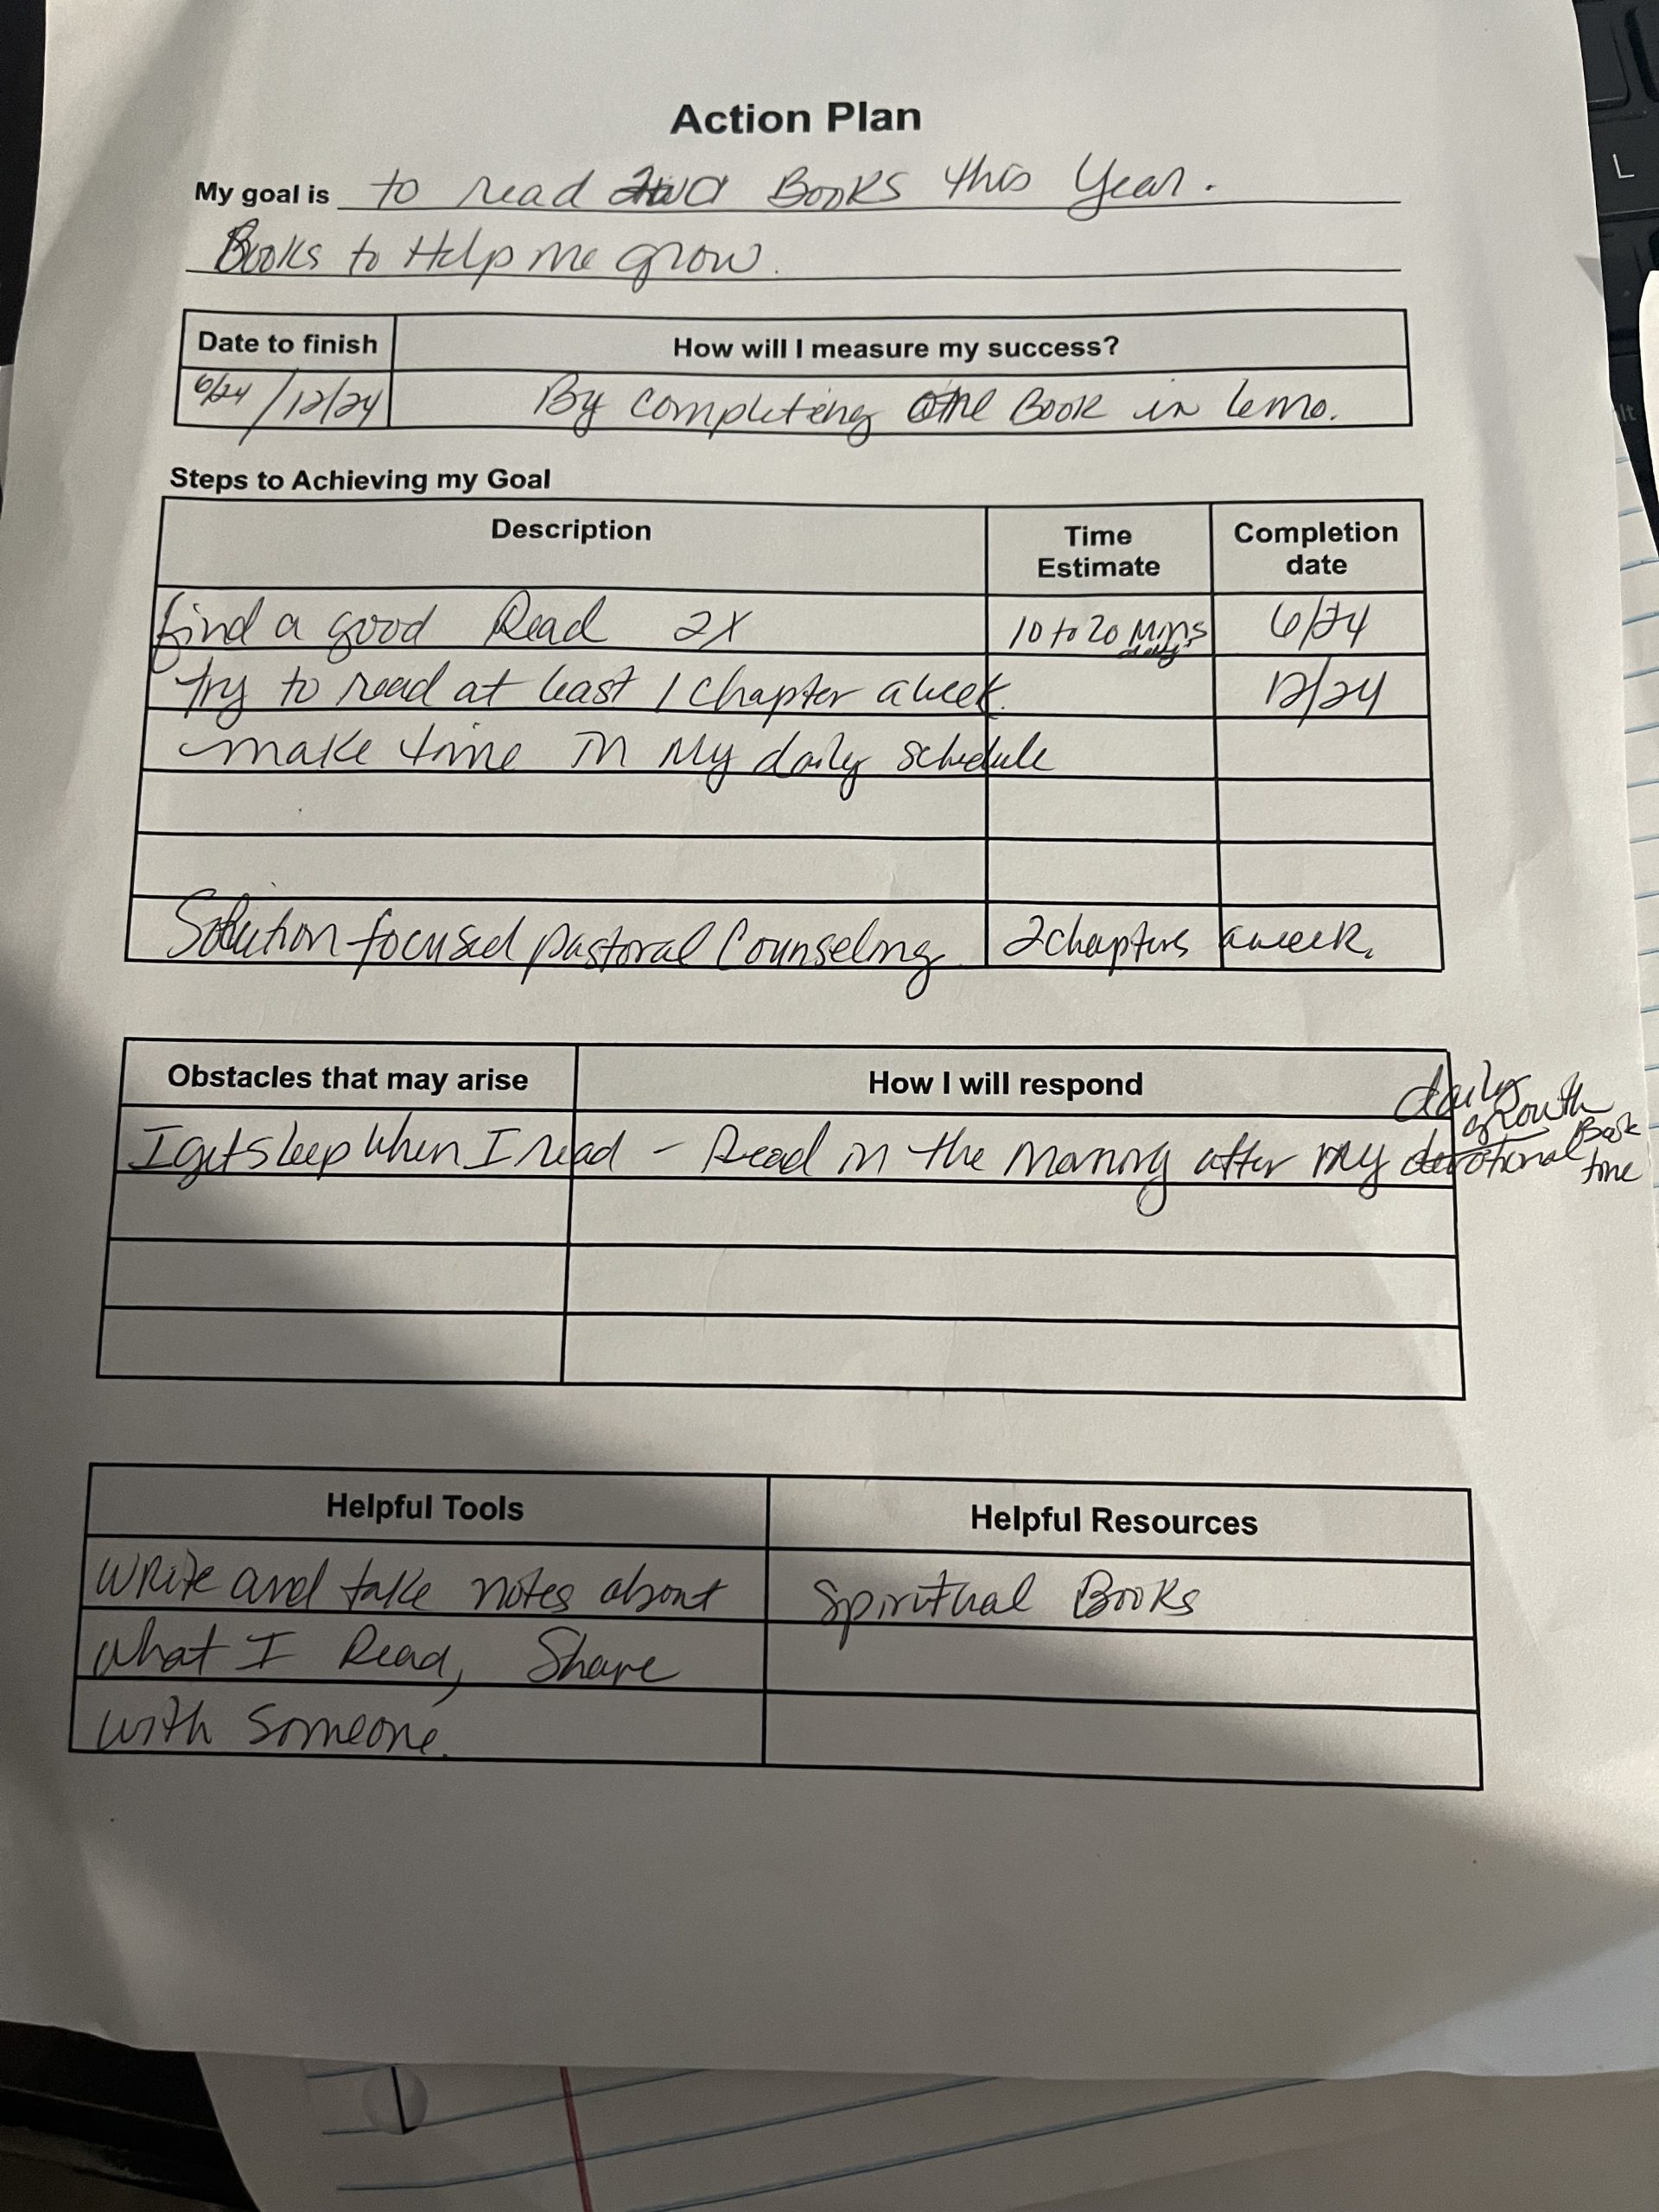 Action Plan
My goal is to read two Books this Year.
Books to Help me grow.
Date to finish How will I measure my success?
6/24 / 12/24 By completeing one Book in 6mo.
Steps to Achieving my Goal
Description Time Estimate Completion date
find a good Read 2X 10 to 20 Mins daily 6/24
Try to read at least 1 chapter a week. 12/24
make time in My daily schedule
Solution focused pastoral Counseling 2 chapters a week.
Obstacles that may arise How I will respond
daily growth Book time
I get sleep when I read - Read in the Morning after my devotional
Helpful Tools Helpful Resources
Write and take notes about Spirithal Books
what I Read, Share
with someone.
L